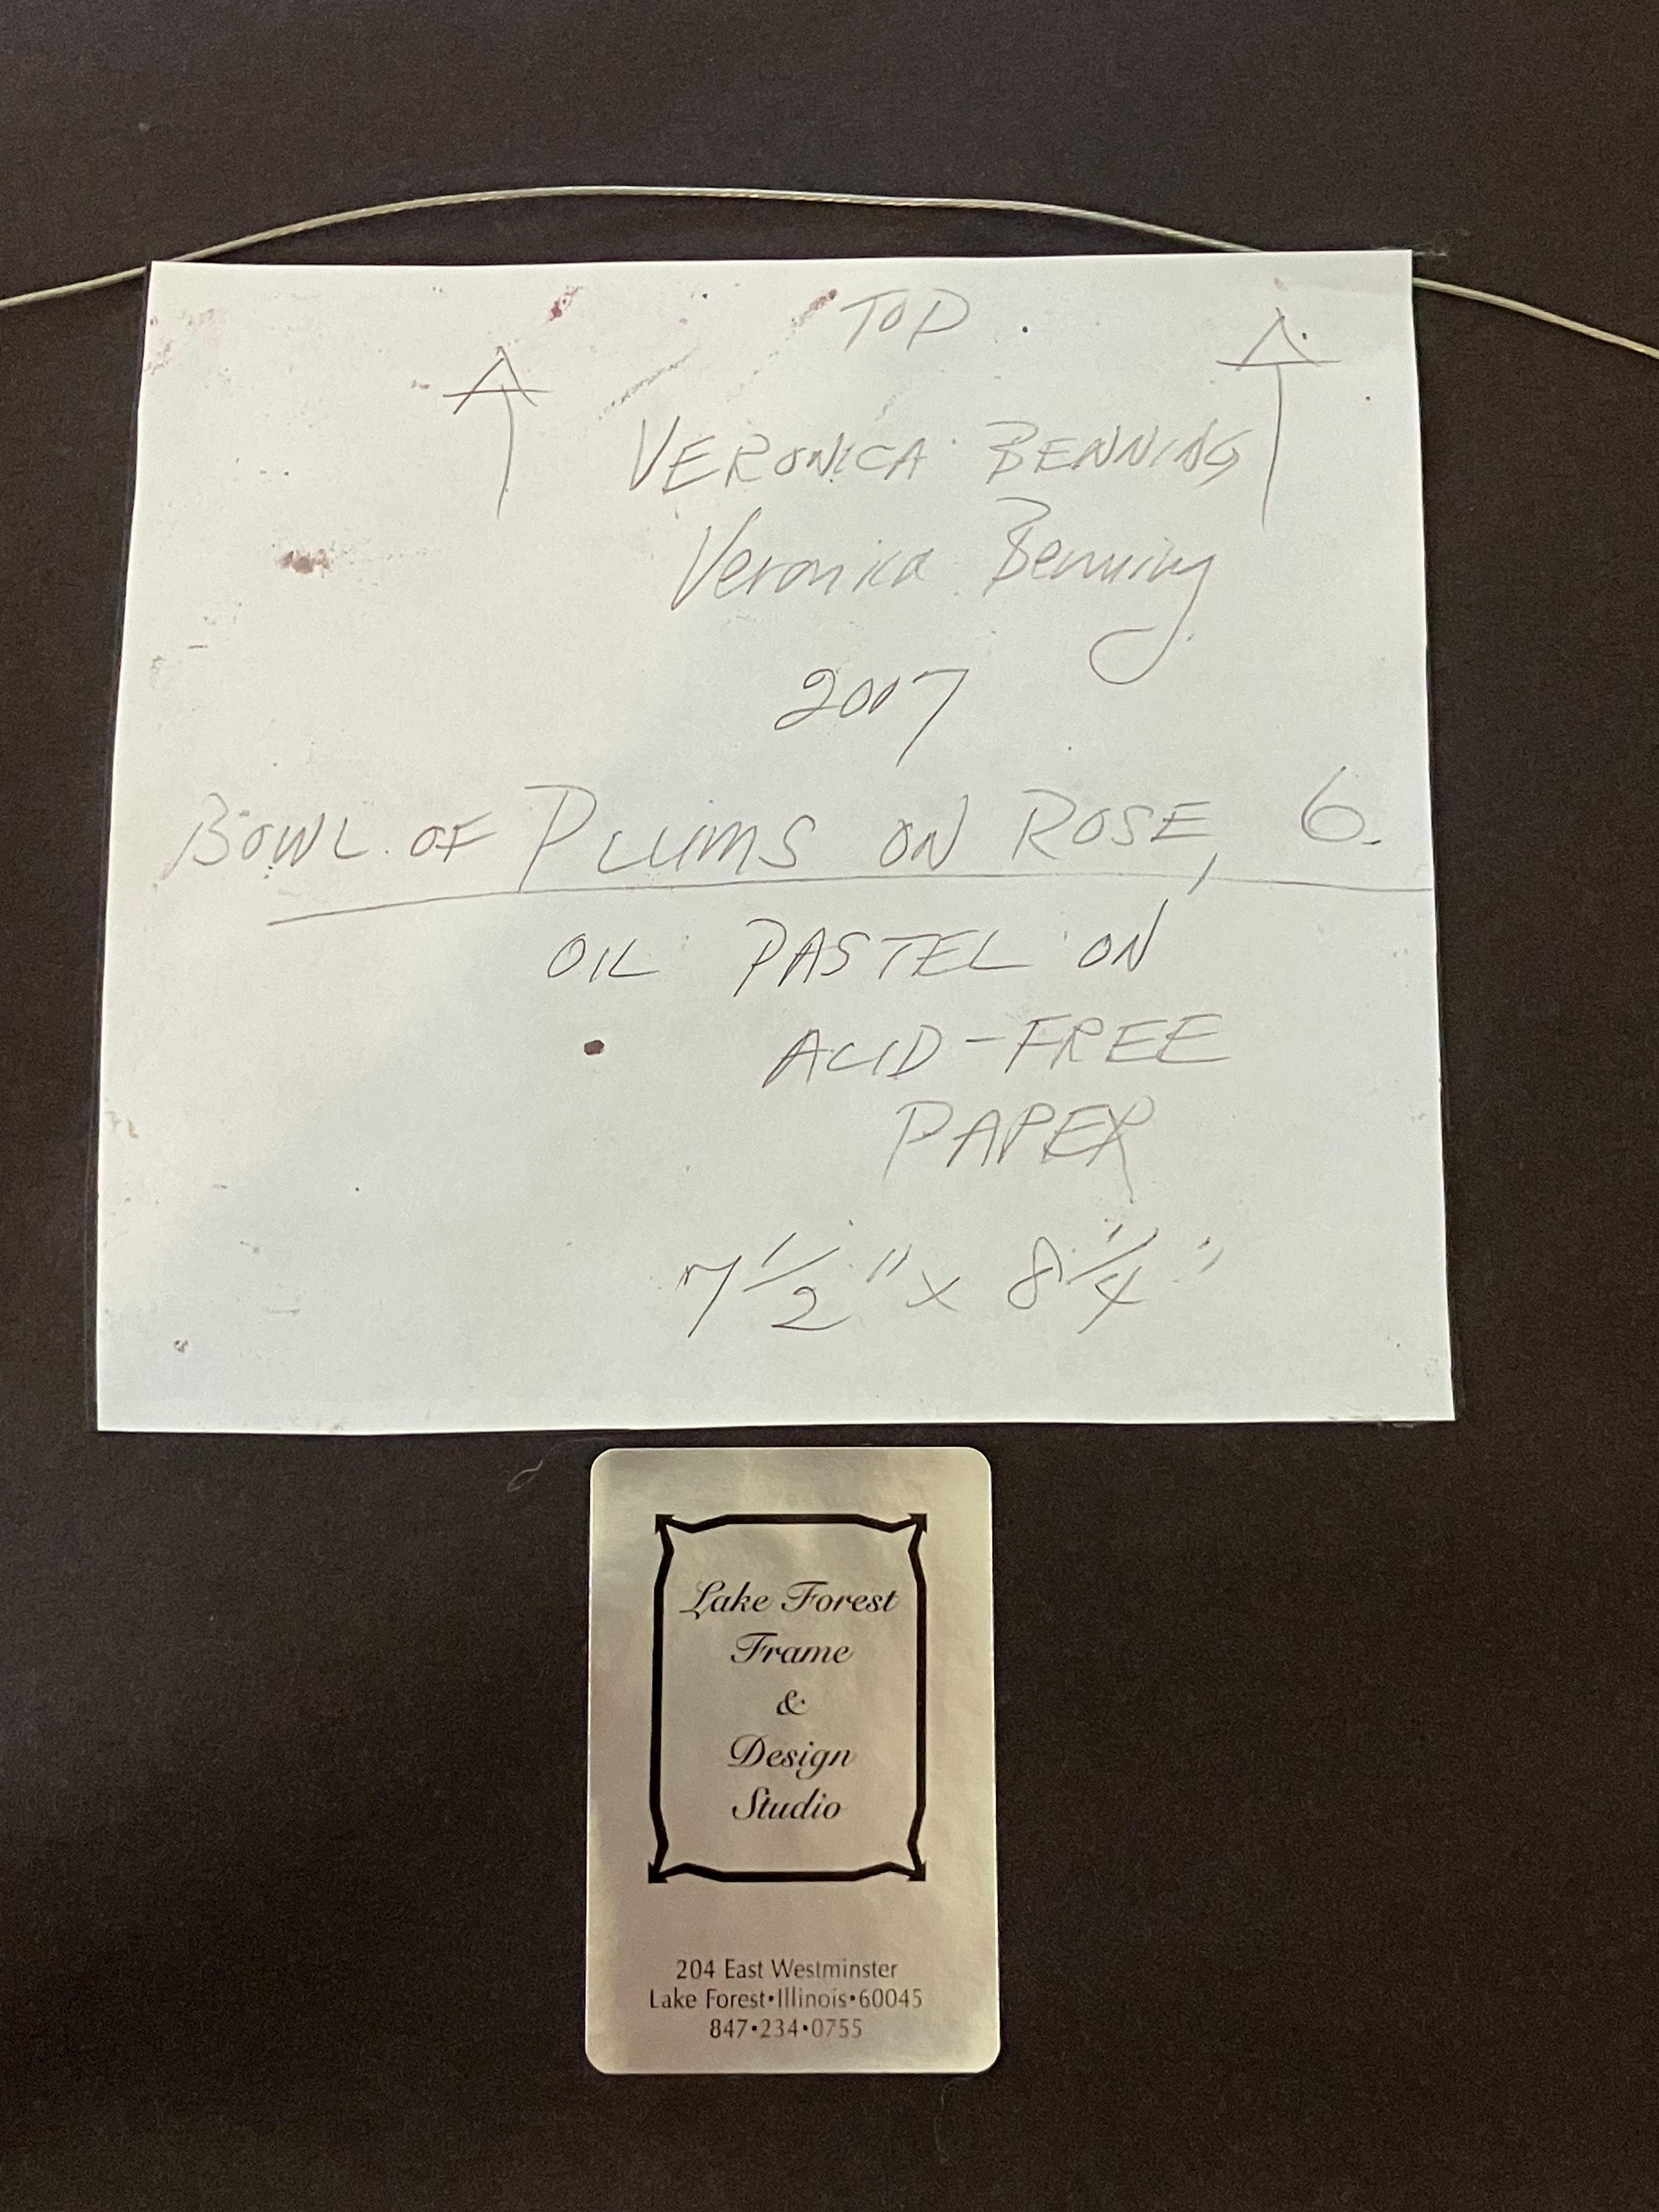 TOP
VERONICA BENNING
Veronica Benning
2007
BOWL OF PLUMS ON ROSE, 6.
OIL PASTEL ON
ACID-FREE
PAPER
7 1/2" x 8 1/4"
Lake Forest
Frame
&
Design
Studio
204 East Westminster
Lake Forest•Illinois•60045
847•234•0755